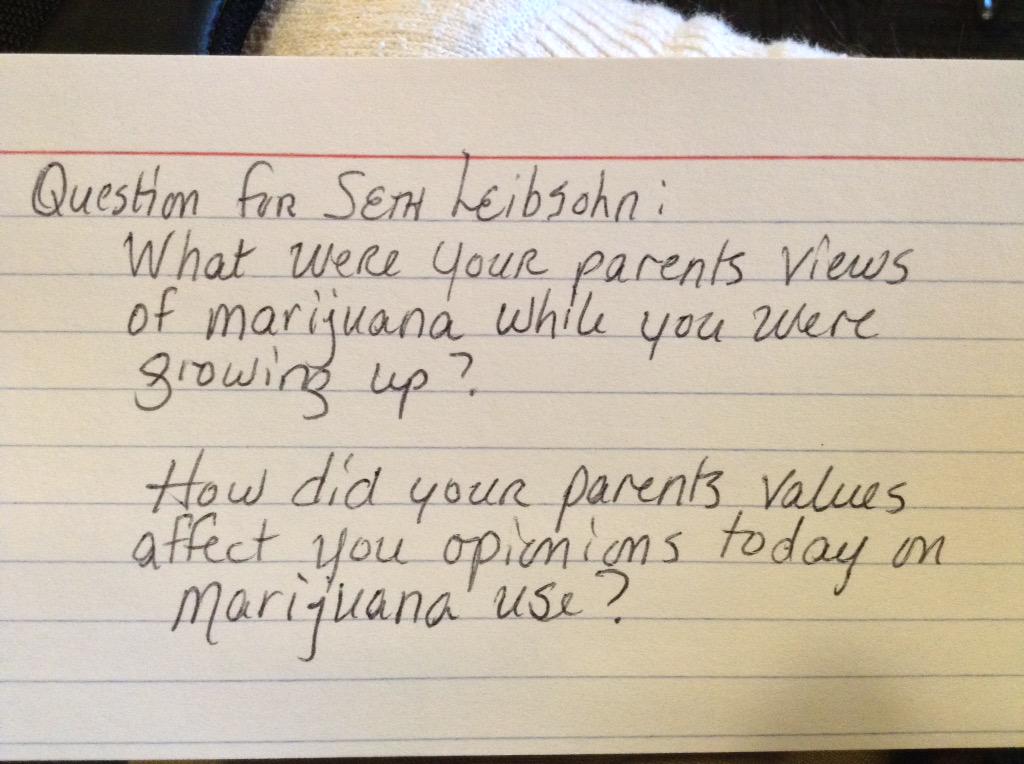 Question for Seth Leibsohn:
What were your parents views
of marijuana while you were
growing up?
How did your parents values
affect you opionions today on
marijuana use?